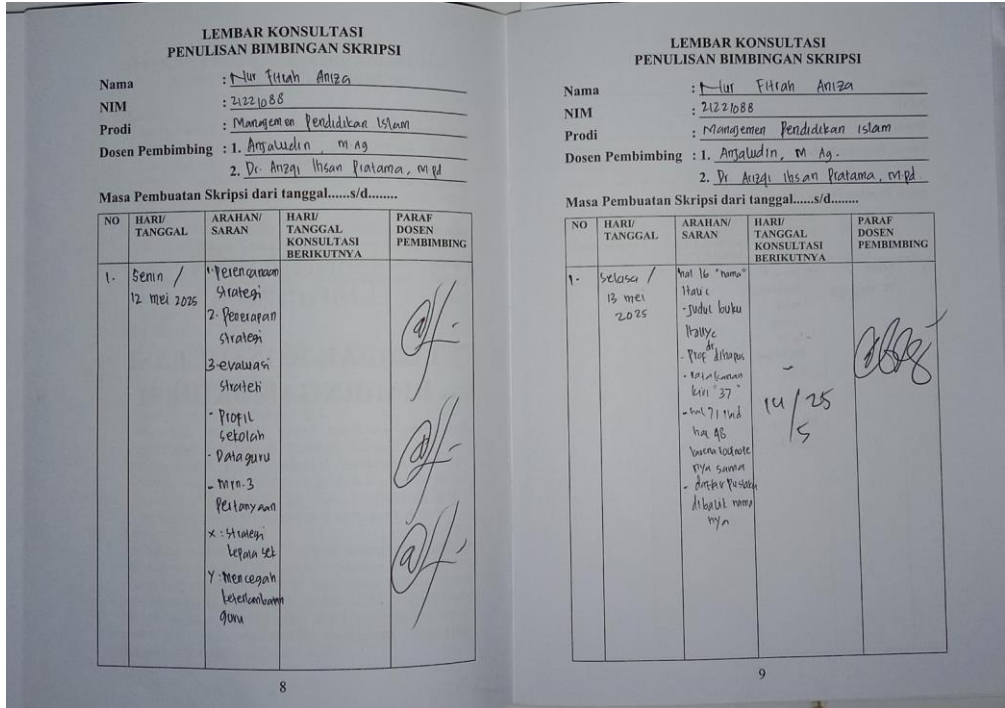 LEMBAR KONSULTASI
PENULISAN BIMBINGAN SKRIPSI
Nama : Nur Fitrah Aniza
NIM : 21221088
Prodi : Manajemen Pendidikan Islam
Dosen Pembimbing : 1. Anjaludin, M.Ag
2. Dr. Arizqi Ihsan Pratama, M.pd
Masa Pembuatan Skripsi dari tanggal......s/d........
NO HARI/ ARAHAN/ HARI/ PARAF
TANGGAL SARAN TANGGAL DOSEN
KONSULTASI PEMBIMBING
BERIKUTNYA
1. Senin / 1. Perencanaan
12 mei 2025 strategi
2. Penerapan
strategi
3. evaluasi
strateti
- Profil
sekolah
- Data guru
- mm. 3
Pertanyaan
X : Strategi
kepala sek
Y : Mencegah
keterlambatan
guru
8
LEMBAR KONSULTASI
PENULISAN BIMBINGAN SKRIPSI
Nama : Nur Fitrah Aniza
NIM : 21221088
Prodi : Manajemen Pendidikan Islam
Dosen Pembimbing : 1. Anjaludin, M Ag.
2. Dr Arizqi Ihsan Pratama, M.pd.
Masa Pembuatan Skripsi dari tanggal......s/d........
NO HARI/ ARAHAN/ HARI/ PARAF
TANGGAL SARAN TANGGAL DOSEN
KONSULTASI PEMBIMBING
BERIKUTNYA
1. Selasa / hal 16 "nama"
13 mei Italic
2025 - Judul buku
Itallyc
- Prof dr dihapus
- rata kanan
kiri "37"
- hal 71
hal 48 14/5 25
karena footnote
nya sama
- daftar Pustaka
dibalik nama
nya
9